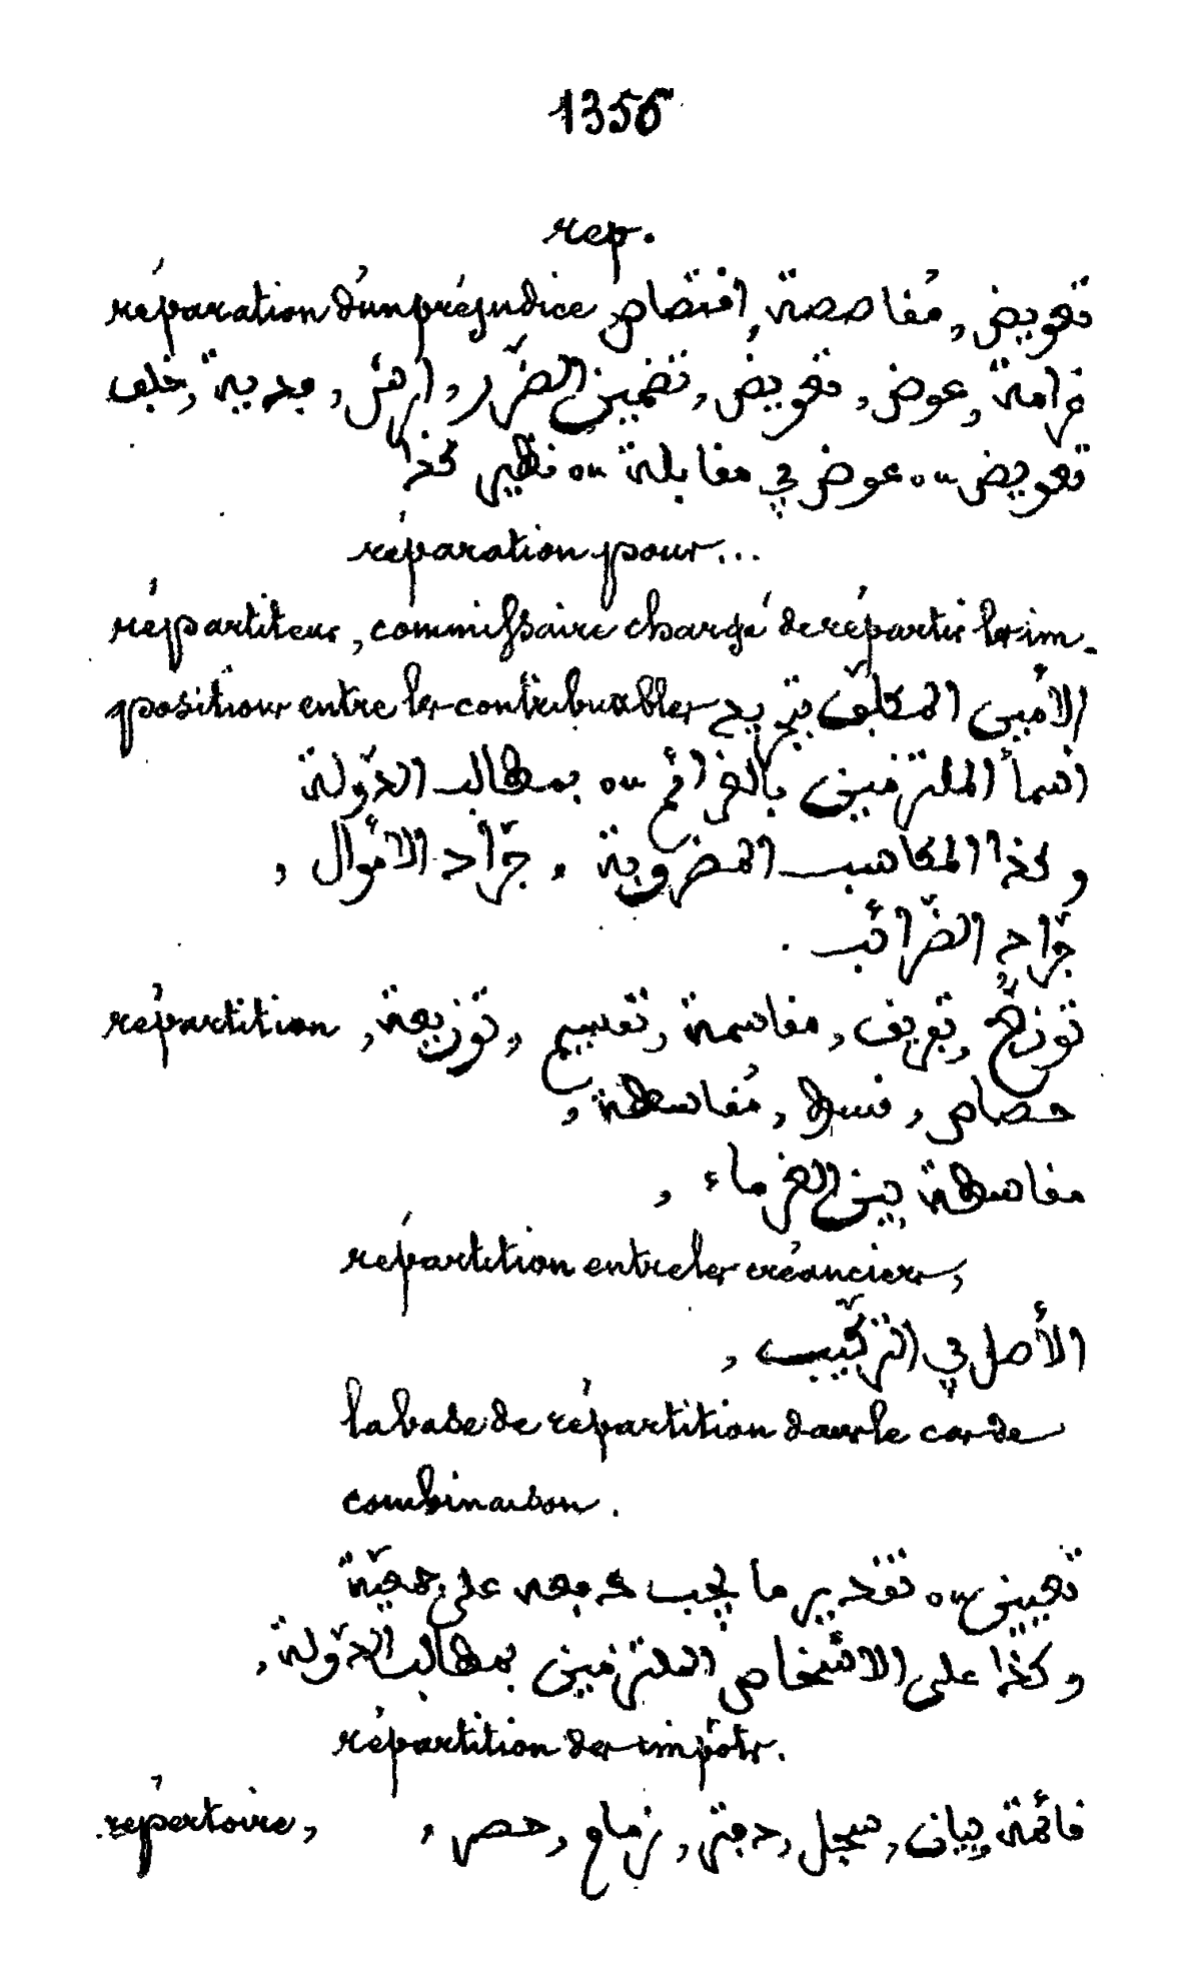 1356
rep.
réparation d'un préjudice تعويض, مُقاصصة, اقتصاص
غرامة, عوض, تعويض, تضمين الضّرر, أرش, بدية, خلف
تعويض ou عوض في مقابلة ou نظير كذا
réparation pour...
répartiteur, commissaire chargé de répartir les im-
positions entre les contribuables الأمين المكلّف
اسماء الملتزمين بالغرائم ou بمطالب الدّولة
وكذا المكاسب المضروبة, جرّاد الاموال,
جرّاد الضّرائب.
répartition توزيع, تفريق, مقاسمة, تقسيم, توزيعة,
حصاص, قسط, مُقاسطة,
مقاسطة بين الغرماء,
répartition entre les créanciers,
الأصل في التركّيب,
la base de répartition dans le cas de
combinaison.
تعيين ou تقدير ما يجب دفعه على جمعيّة
وكذا على الاشخاص الملتزمين بمطالب الدّولة,
répartition des impôts.
répertoire, قائمة, بيان, سجل, دفتر, زمام, حصر,